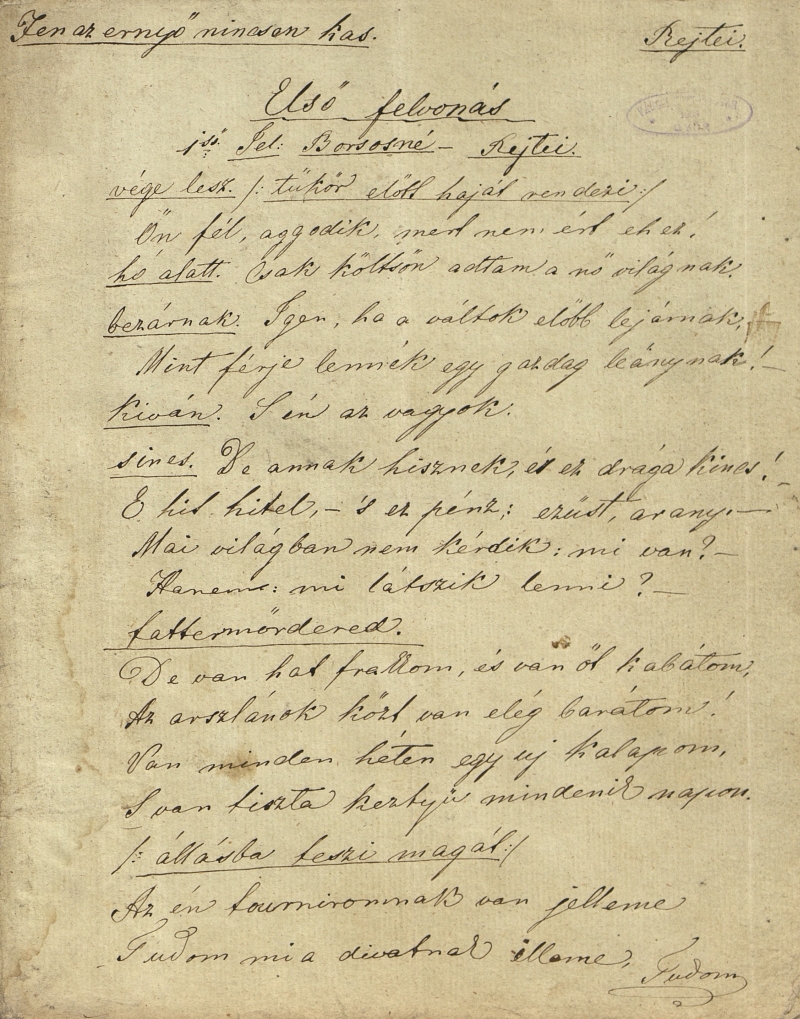 Fenn az ernyő nincsen kas.
Rejtei.
Első felvonás
1ső Jel: Borsosné – Rejtei.
vége lesz. /: tükör előtt haját rendezi :/
Ön fél, aggodik, mert nem ért ehez!
hó alatt. Csak költsön adtam a nő világnak.
bezárnak. Igen, ha a váltok előbb lejárnak,
Mint férje lennék egy gazdag leánynak! –
kiván. S én az vagyok.
sincs. De annak hisznek, és ez drága kincs! –
E hit hitel, – 's ez pénz; ezüst, arany. –
Mai világban nem kérdik: mi van? –
Hanem: mi látszik lenni? –
fattermördered.
De van hat frakkom, és van öt kabátom,
Az arszlánok közt van elég barátom!
Van minden héten egy uj kalapom,
S van tiszta keztyü mindenik napon.
/: állásba teszi magát :/
Az én tourniromnak van jelleme
Tudom mi a divatnak illeme,
Tudom